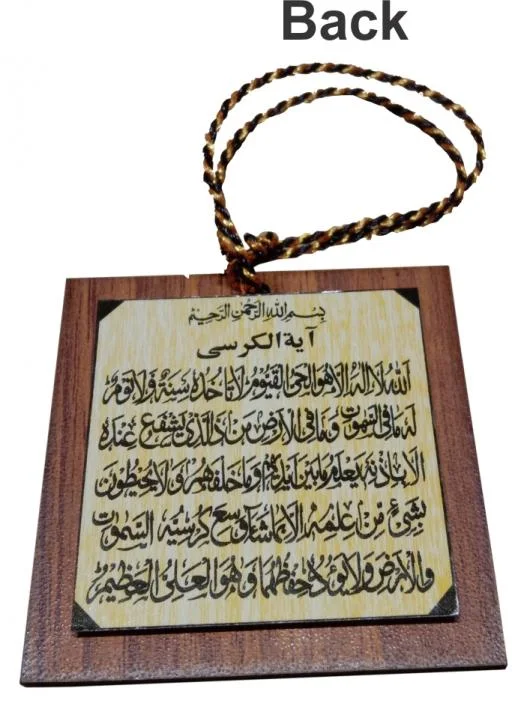 Back
بسم الله الرحمن الرحيم
آية الكرسي
الله لا اله الا هو الحي القيوم لا تاخذه سنة ولا نوم
له ما في السموت وما في الارض من ذالذي يشفع عنده
الا باذنه يعلم ما بين ايديهم وما خلفهم ولا يحيطون
بشيء من علمه الا بما شاء وسع كرسيه السموت
والارض ولا يوده حفظهما وهو العلي العظيم